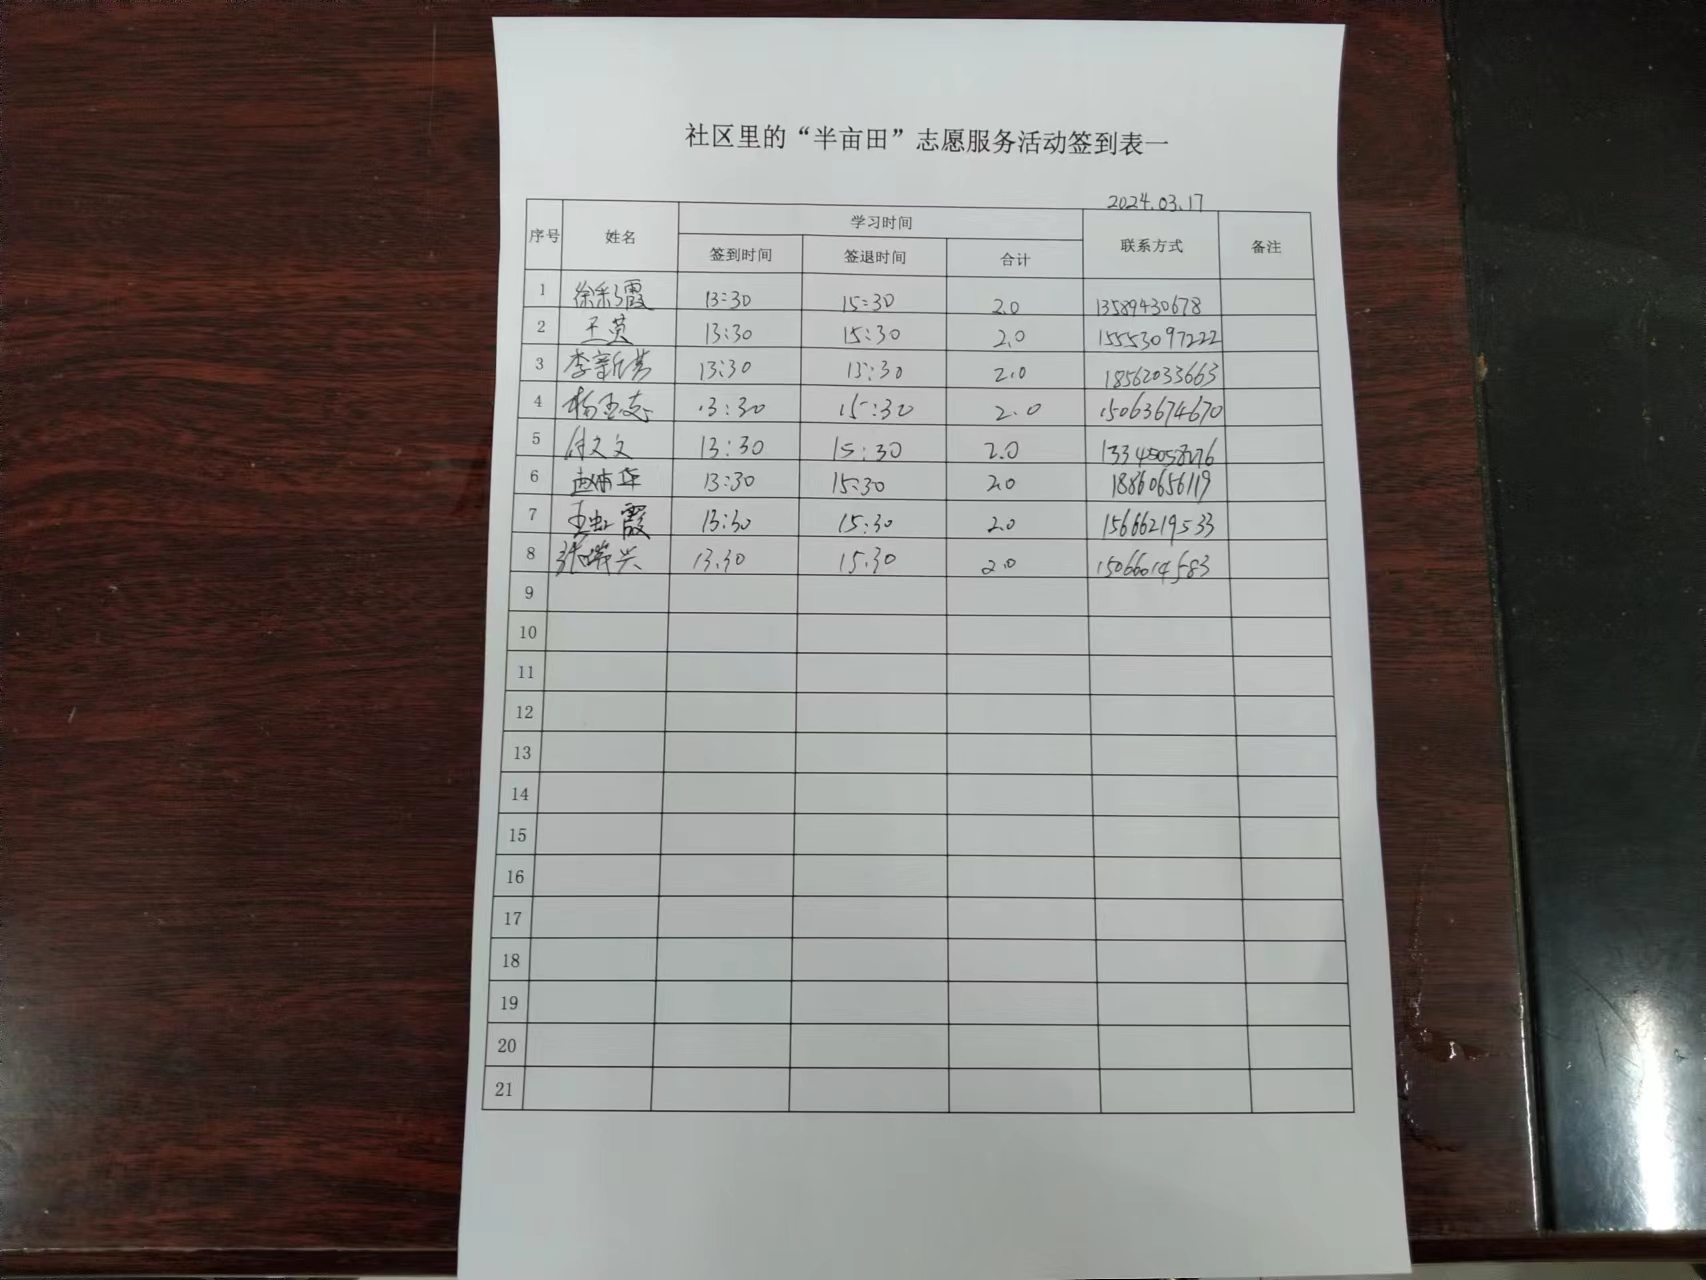 社区里的“半亩田”志愿服务活动签到表一
2024.03.17
序号 姓名 学习时间 联系方式 备注
签到时间 签退时间 合计
1 徐彩霞 13:30 15:30 2.0 13589430678
2 王英 13:30 15:30 2.0 15553097222
3 李新芳 13:30 15:30 2.0 18562033663
4 杨玉志 13:30 15:30 2.0 15063674670
5 付文文 13:30 15:30 2.0
6 13:30 15:30 2.0 18860656119
7 霞 13:30 15:30 2.0 15666219533
8 张 兴 13.30 15.30 2.0 15066014583
9
10
11
12
13
14
15
16
17
18
19
20
21